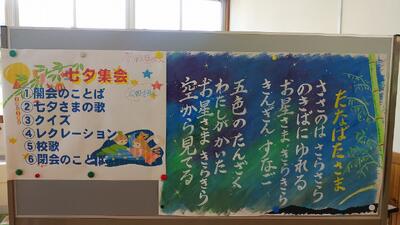 七夕集会
①開会のことば
②七夕さまの歌
③クイズ
④レクレーション
⑤校歌
⑥閉会のことば
たなばたさま
ささのは さらさら
のきばに ゆれる
お星さま きらきら
きんぎん すなご
五色の たんざく
わたしが かいた
お星さま きらきら
空から 見てる